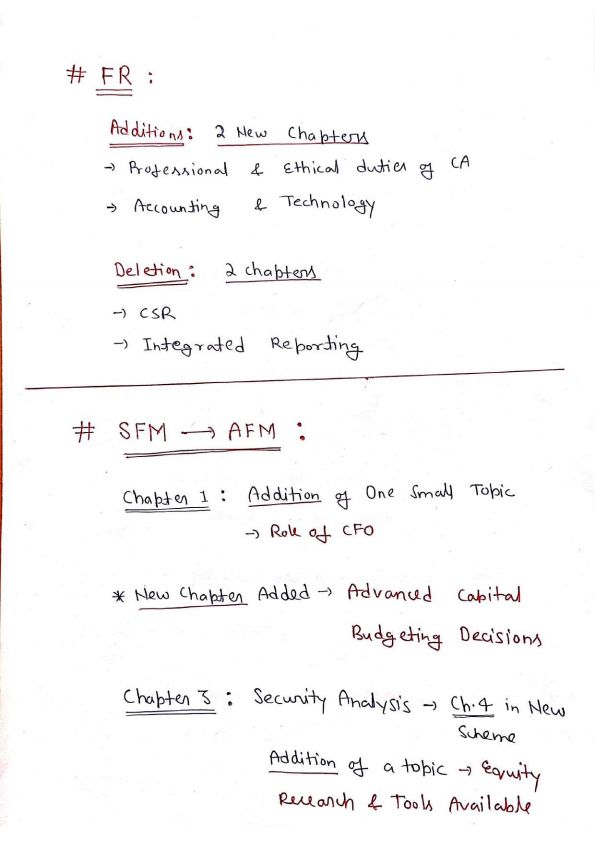 # FR :
Additions: 2 New Chapters
→ Professional & Ethical duties of CA
→ Accounting & Technology
Deletion: 2 chapters
→ CSR
→ Integrated Reporting
# SFM → AFM :
Chapter 1 : Addition of One Small Topic
→ Role of CFO
* New Chapter Added → Advanced Capital
Budgeting Decisions
Chapter 3 : Security Analysis → Ch.4 in New
Scheme
Addition of a topic → Equity
Research & Tools Available